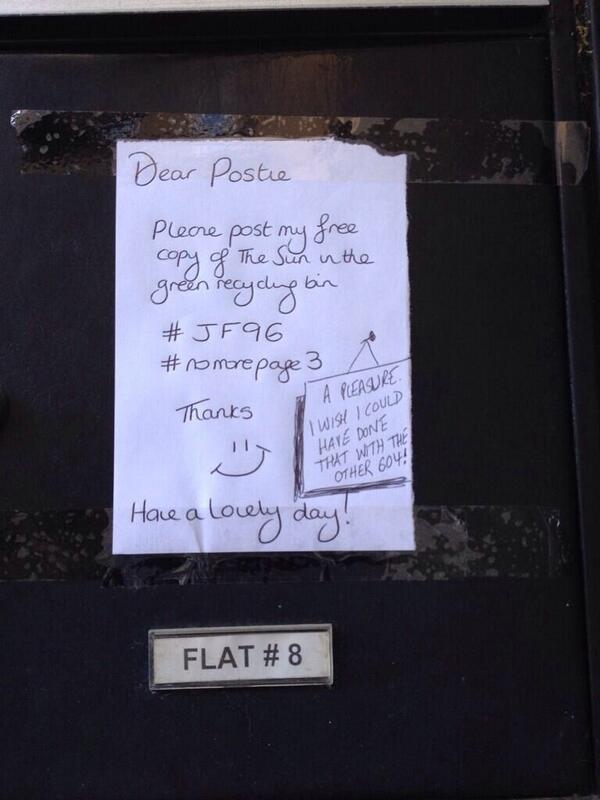 Dear Postie
Please post my free
copy of The Sun in the
green recycling bin
# JF96
# nomorepage3
Thanks
A PLEASURE.
I WISH I COULD
HAVE DONE
THAT WITH THE
OTHER 604!
Have a lovely day!
FLAT # 8